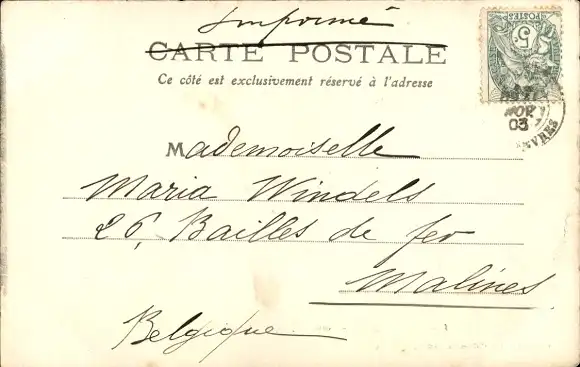 Imprimé
CARTE POSTALE
Ce côté est exclusivement réservé à l'adresse
POSTES
5c
NOR
03
Mademoiselle
Maria Windels
26, Bailles de fer
Malines
Belgique